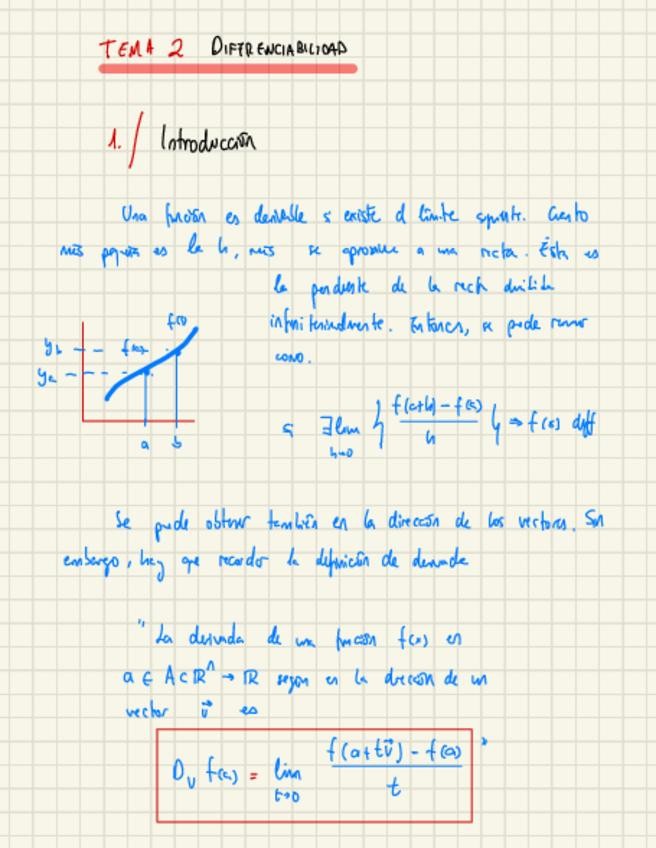 TEMA 2 DIFERENCIABILIDAD
1./ Introducción
Una función es derivable si existe el límite siguiente. Cuanto
más pequeña es la h, más se aproxima a una recta. Ésta es
la pendiente de la recta dividida
infinitesimalmente. Entonces, se puede
como.
f(x)
y_b
y_a
a b
si ∃ lim { f(a+h) - f(a) / h } ⇒ f(x) diff
h→0
Se puede obtener también en la dirección de los vectores. Sin
embargo, hay que recordar la definición de derivada
"La derivada de una función f(x) en
a ∈ A ⊂ ℝⁿ → ℝ según en la dirección de un
vector v⃗ es
D_v f(a) = lim f(a+tv⃗) - f(a) / t "
t→0